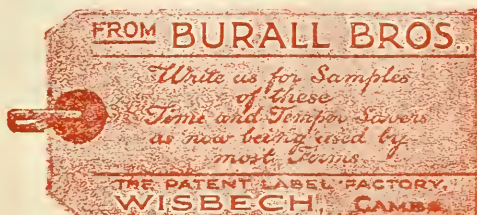 FROM BURALL BROS.,
Write us for Samples
of these
Time and Temper Savers
as now being used by
most Firms
THE PATENT LABEL FACTORY,
WISBECH, CAMBS.